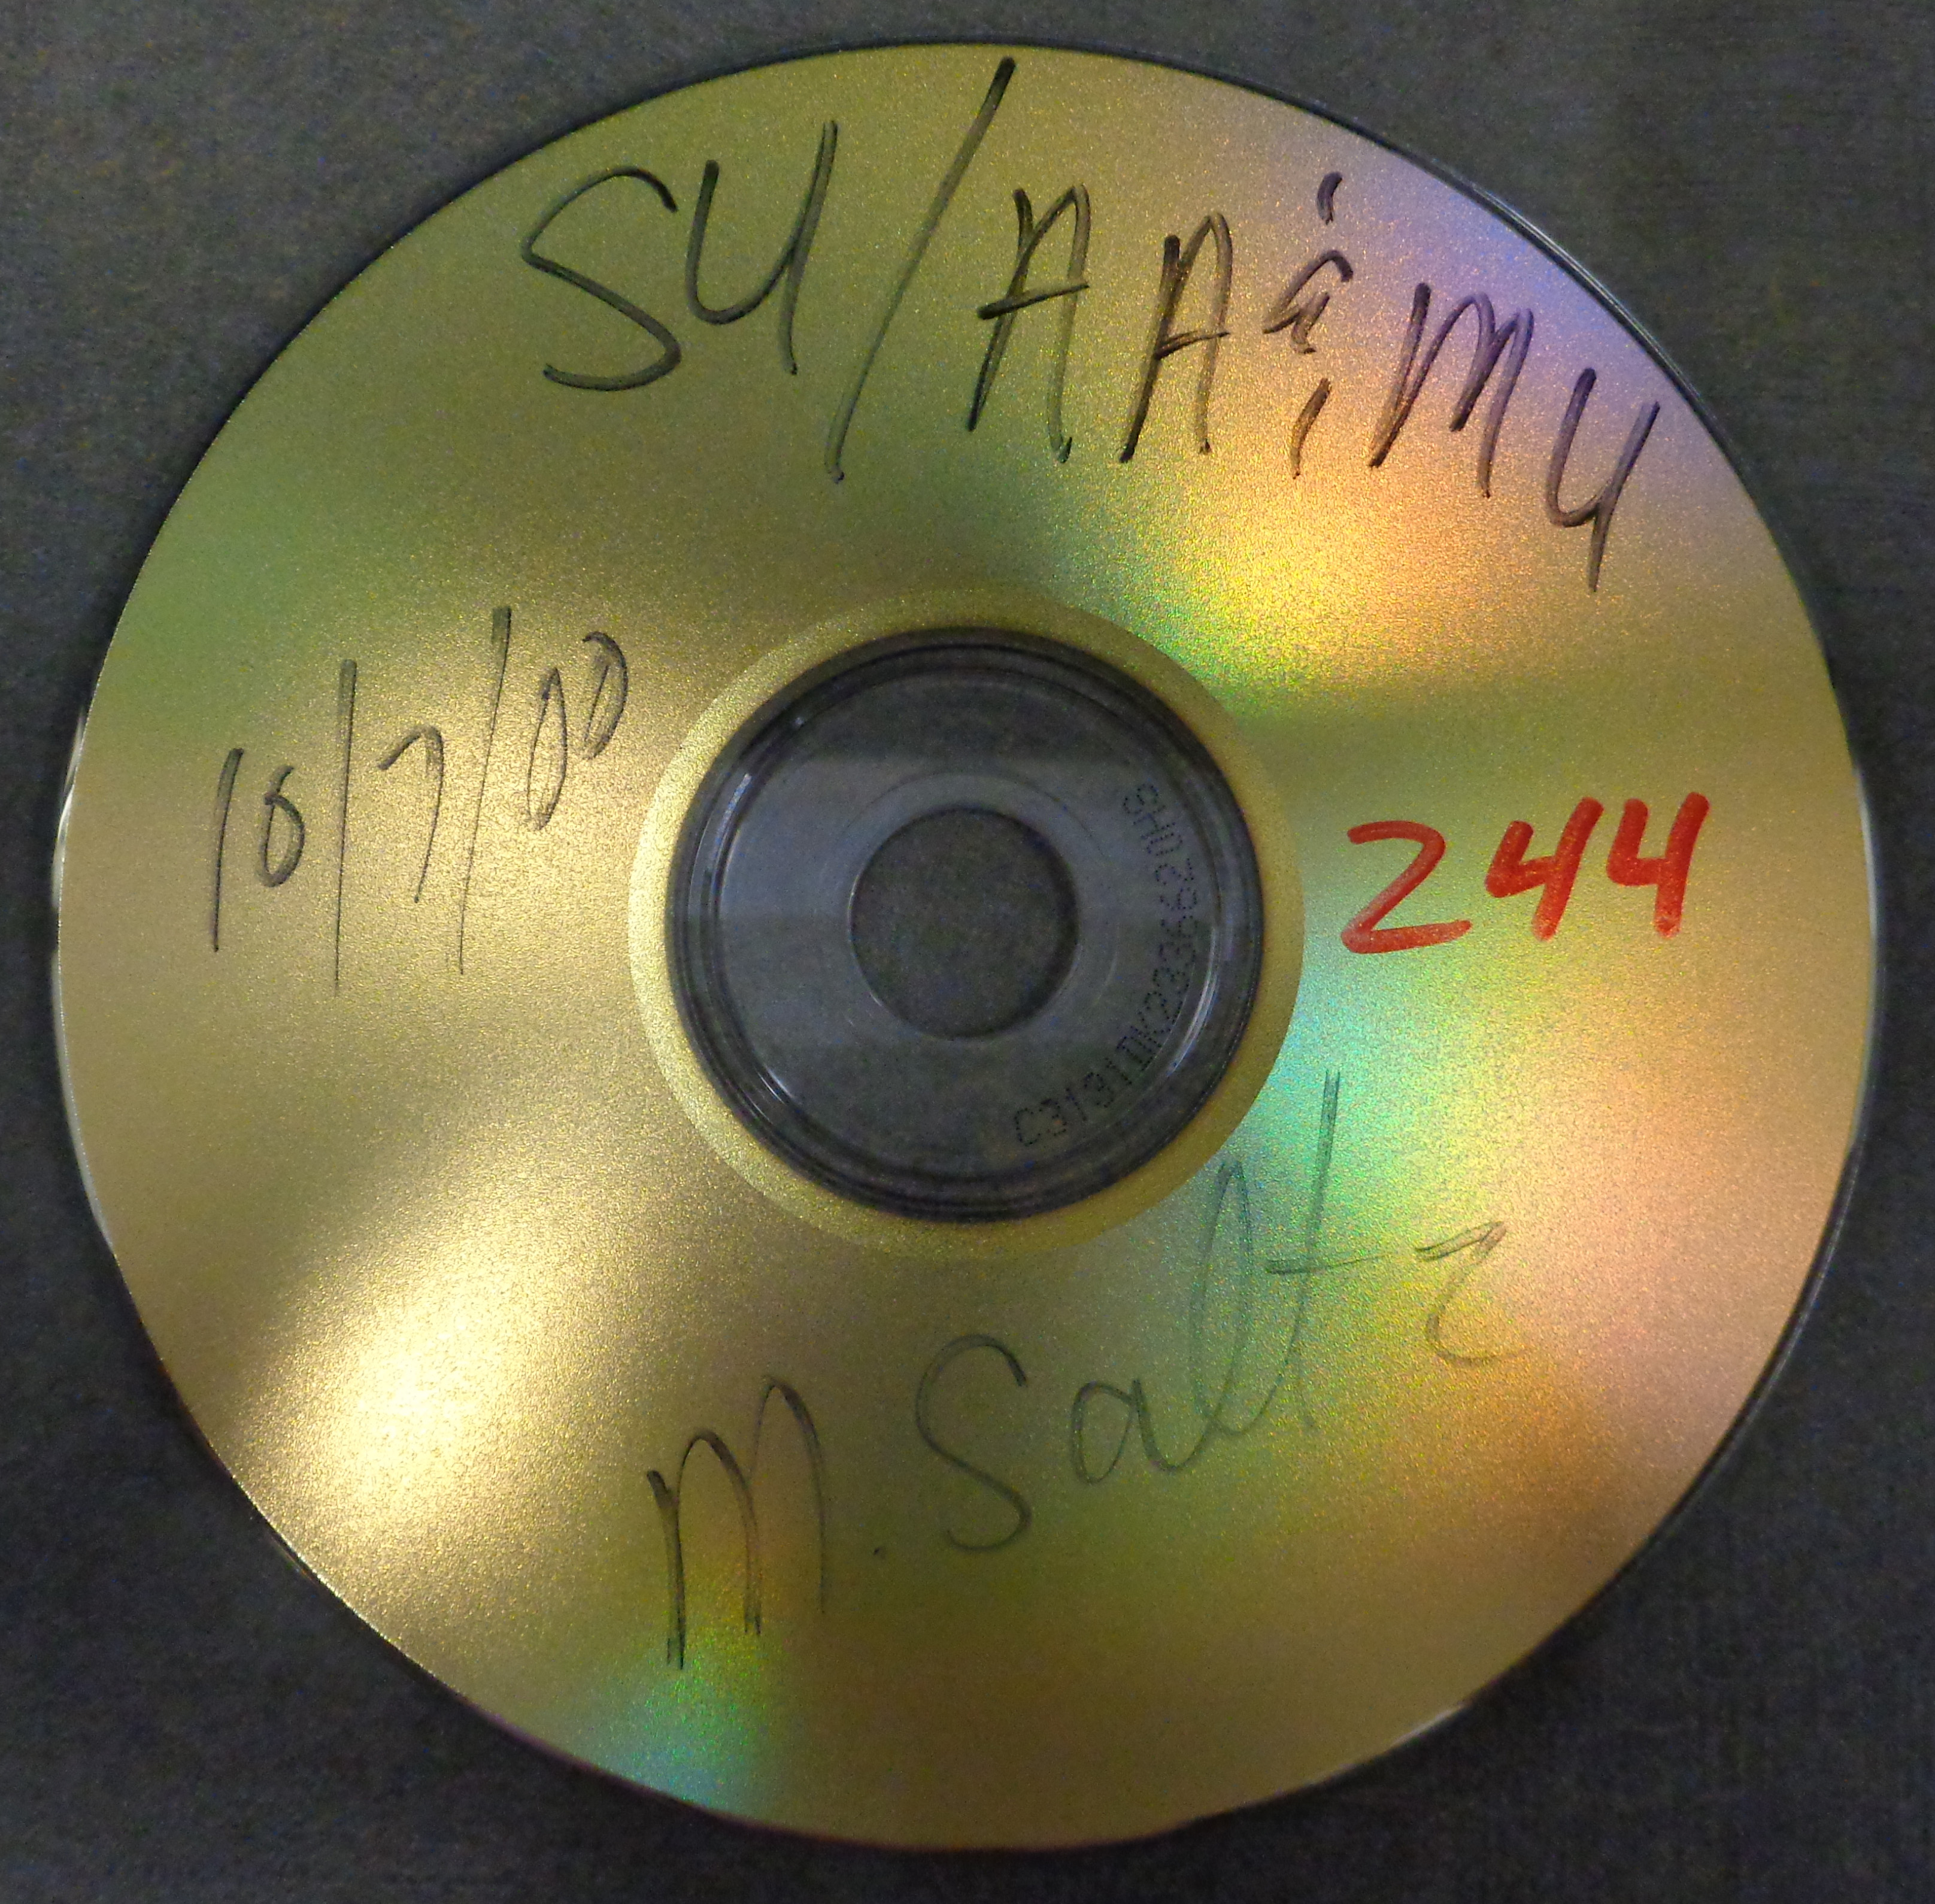 SU/AA&MU
10/7/00
244
C3191DK2336620H9
M. Saltz